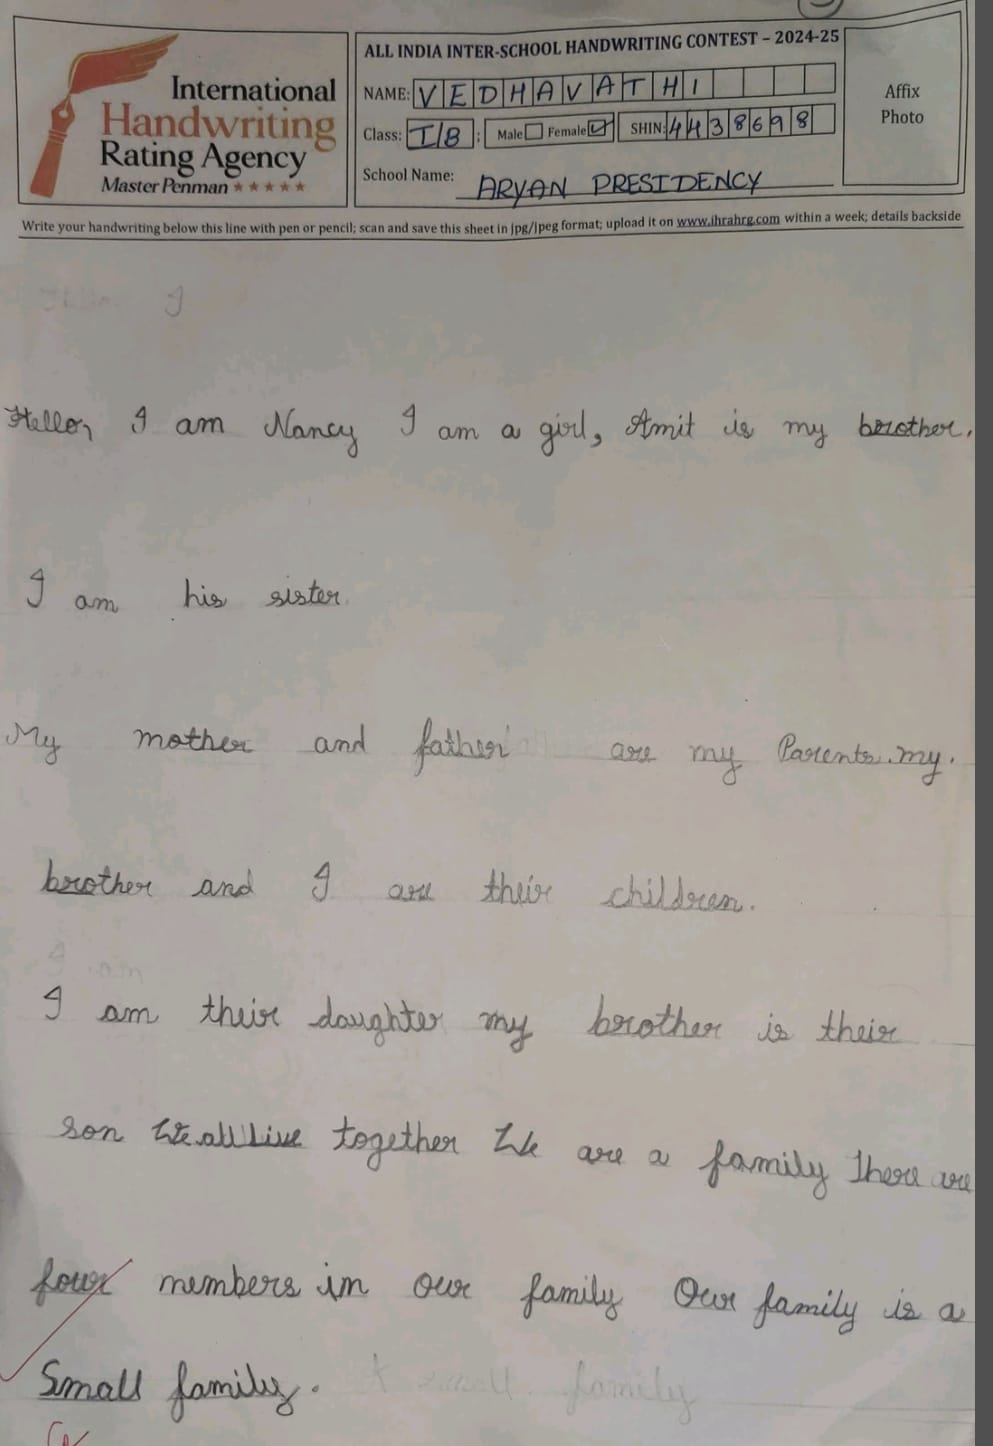 International
Handwriting
Rating Agency
Master Penman ★★★★★
ALL INDIA INTER-SCHOOL HANDWRITING CONTEST – 2024-25
NAME: VEDHAVATHI
Class: I/B : Male Female SHIN: 4438698
School Name: ARYAN PRESIDENCY
Affix
Photo
Write your handwriting below this line with pen or pencil; scan and save this sheet in jpg/jpeg format; upload it on www.ihrahrg.com within a week; details backside
Hello, I am Nancy I am a girl, Amit is my brother.
I am his sister.
My mother and father are my Parents. my.
brother and I are their children.
I am their daughter my brother is their
son We all Live together We are a family There are
four members in our family Our family is a
Small family.